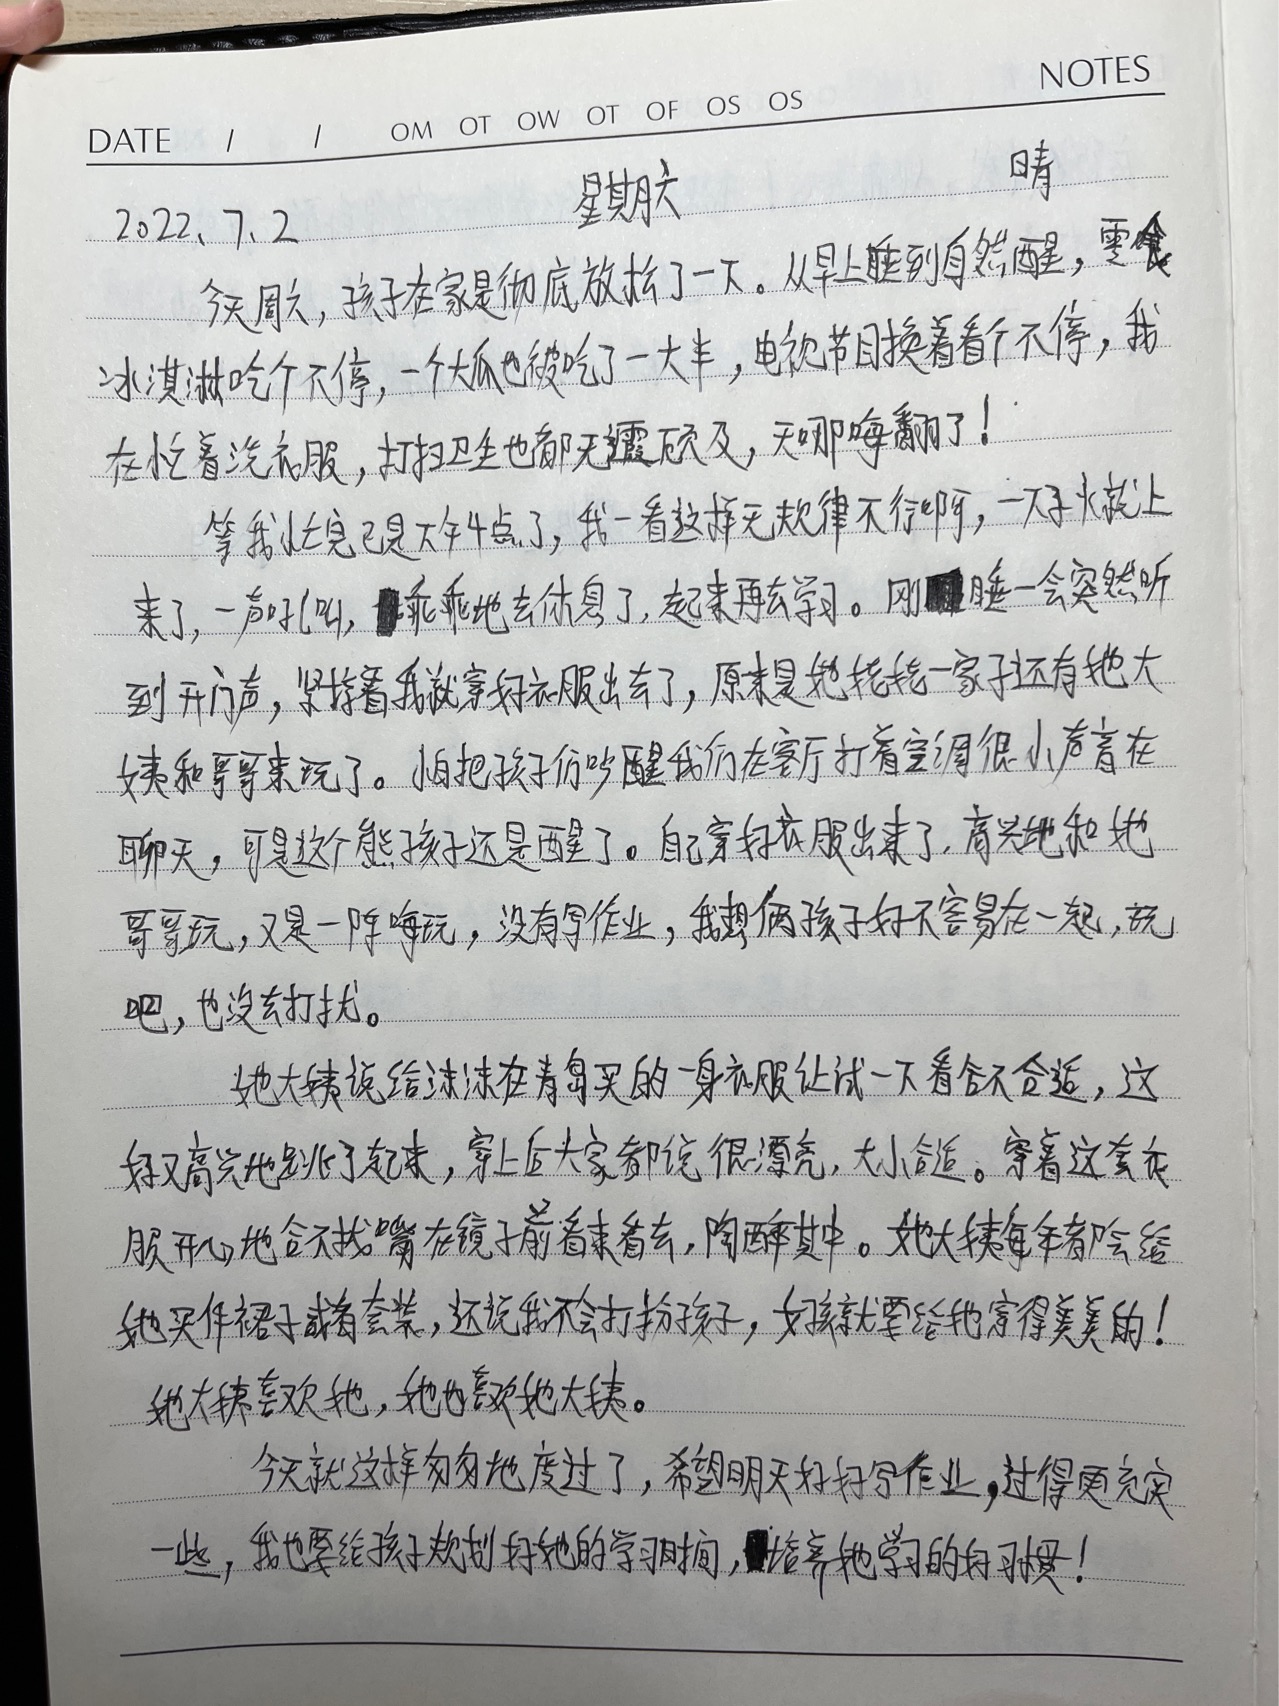 NOTES
DATE / / OM OT OW OT OF OS OS
2022、7、2 星期六 晴
今天周六，孩子在家是彻底放松了一下。从早上睡到自然醒，零食
冰淇淋吃个不停，一个大瓜也被吃了一大半，电视节目换着看个不停，我
在忙着洗衣服，打扫卫生也都无暇顾及，天哪嗨翻了！
等我忙完已是下午4点了，我一看这样无规律不行啊，一下子火就上
来了，一声吼叫，乖乖地去休息了，起来再去学习。刚睡一会突然听
到开门声，紧接着我就穿好衣服出去了，原来是她姥姥一家子还有她大
姨和哥哥来玩了。怕把孩子们吵醒我们在客厅打着空调很小声音在
聊天，可是这个熊孩子还是醒了。自己穿好衣服出来了，高兴地和她
哥哥玩，又是一阵嗨玩，没有写作业，我想俩孩子好不容易在一起，玩
吧，也没去打扰。
她大姨说给沫沫在青岛买的一身衣服让试一下看合不合适，这
好又高兴地跳了起来，穿上后大家都说很漂亮，大小合适。穿着这套衣
服开心地合不拢嘴在镜子前看来看去，陶醉其中。她大姨每年都会给
她买件裙子或者套装，还说我不会打扮孩子，女孩就要给她穿得美美的！
她大姨喜欢她，她也喜欢她大姨。
今天就这样匆匆地度过了，希望明天好好写作业，过得更充实
一些，我也要给孩子规划好她的学习时间，培养她学习的好习惯！